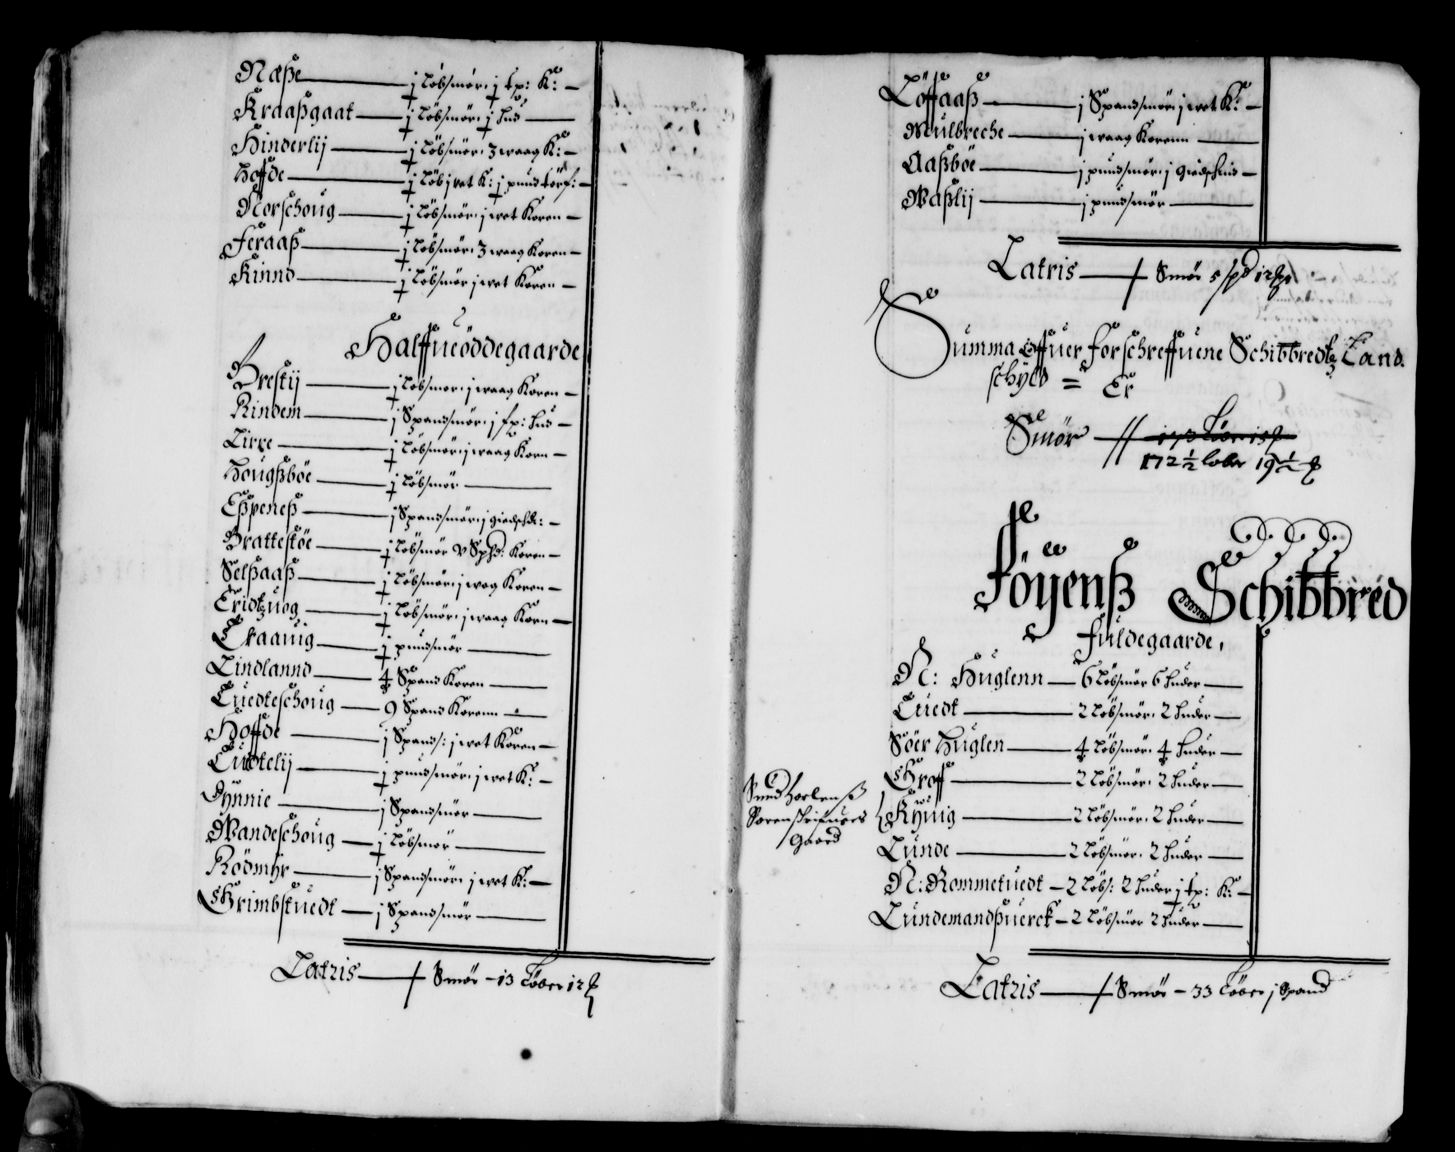 Næße — j Løbsmør: j tp: K: —
Kraaßgaat — j Løbsmør: j Hud —
Hinderlij — j Løbsmør: 3 waag K: —
Hoffde — j Løb j vet K: j pund
Norschoug — j Løbsmør: j vet Koren —
Feraaß — j Løbsmør: 3 waag Koren —
Kinnd — j Løbsmør j vet Koren —
Halffueøddegaarde
Brestij — j Løbsmør: j waag Koren —
Rindem — j Spandsmør: j tp: Hud —
Lirre — j Løbsmør: j waag Korn —
Hougßbøe — j Løbsmør —
Eßpeneß — j Spandsmør: j giedsk: —
Brattestøe — j Løbsmør V Spd: Koren —
Selßaaß — j Løbsmør: j wog Koren —
Eridtzuog — j Løbsmør: j waag Korn —
Ekaanig — j pundsmør —
Lindlannd — 4 Spand Koren —
Tuedteschoug — 9 Spand Korenn —
Hoffde — j Spands: j vet Koren —
Tuedtelij — j pundsmør: j vet K: —
Dynnie — j Spandsmør —
Wandeschoug — j Løbsmør —
Rødmyr — j Spandsmør: j vet K: —
Grimbstuedt — j Spandsmør —
Latris — Smør – 13 Løber 12
Løffaaß — j Spandsmør: j vet K: —
Mulbreche — j waag Korenn —
Aaßbøe — j pundsmør: j giedskud —
Waßlij — j pundsmør —
Latris — Smør 5 spd 12
Summa Offuer forschreffuene Schibbredtz Land
schyld = Er
Smør // 173 Løber 15
172 ½ løber 19 ½
Føyenß Schibbred
fuldegaarde,
N: Huglenn — 6 Løbsmør 6 Huder —
Tuedt — 2 Løbsmør: 2 Huder —
Søer Huglen — 4 Løbsmør: 4 Huder —
Groff — 2 Løbsmør: 2 Huder —
Suend
Sorenskriffuers
Gaard
Kyuig — 2 Løbsmør: 2 Huder —
Lunde — 2 Løbsmør: 2 Huder —
N: Rommetuedt — 2 Løbs: 2 Huder j tp: K: —
Lundemandßuerck — 2 Løbsmør 2 Huder —
Latris — Smør – 33 Løber j Spand